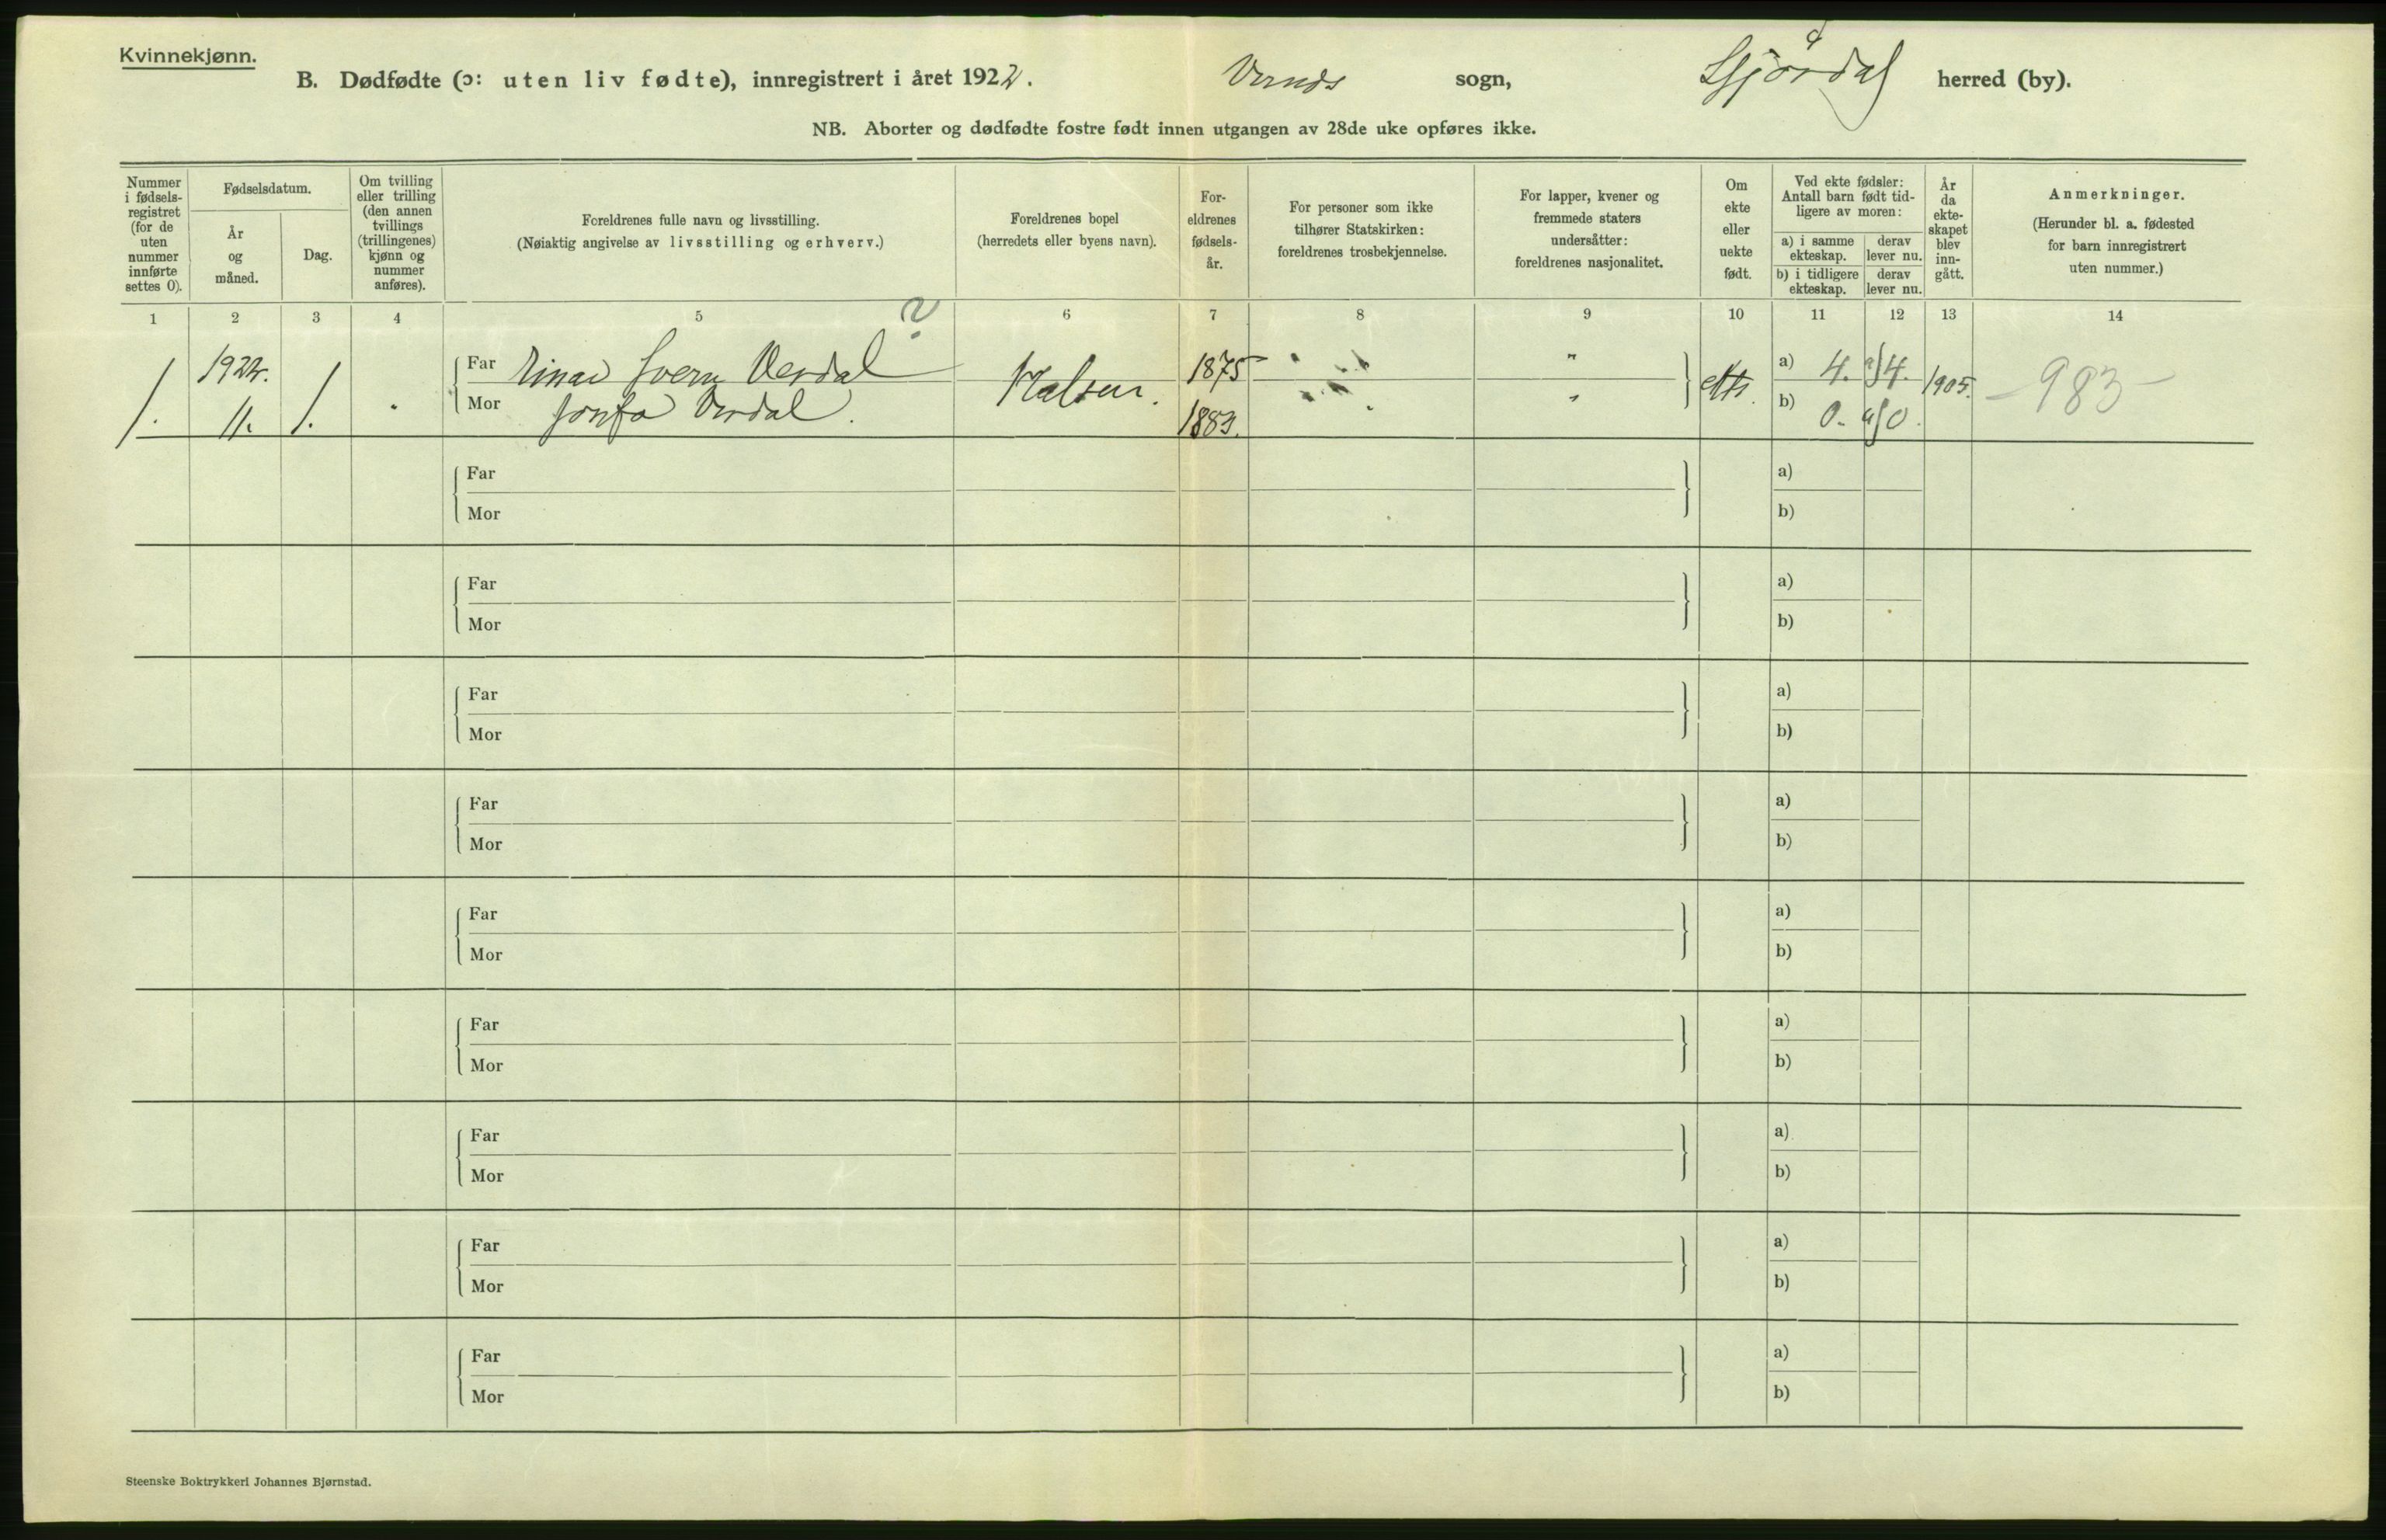 Kvinnekjønn.
B. Dødfødte (ɔ: uten liv fødte), innregistrert i året 1922. sogn, herred (by).
NB. Aborter og dødfødte fostre født innen utgangen av 28de uke opføres ikke.
Nummer i fødsels- registret (for de uten nummer innførte settes 0).
Fødselsdatum.
År og måned.
Dag.
Om tvilling eller trilling (den annen tvillings (trillingenes) kjønn og nummer anføres).
Foreldrenes fulle navn og livsstilling.
(Nøiaktig angivelse av livsstilling og erhverv.)
Foreldrenes bopel
(herredets eller byens navn).
For- eldrenes fødsels- år.
For personer som ikke tilhører Statskirken: foreldrenes trosbekjennelse.
For lapper, kvener og fremmede staters undersåtter: foreldrenes nasjonalitet.
Om ekte eller uekte født.
Ved ekte fødsler: Antall barn født tid- ligere av moren:
a) i samme ekteskap.
derav lever nu.
b) i tidligere ekteskap.
derav lever nu.
År da ekte- skapet blev inn- gått.
Anmerkninger.
(Herunder bl. a. fødested for barn innregistrert uten nummer.)
1 2 3 4 5 6 7 8 9 10 11 12 13 14
?
1. 1922. 11. 1. "
Far Einar Verdal
Mor Verdal.
Halsen.
1875
1883.
" "
ekte
a) 4. a) 4.
b) 0. 0.
1905.
983
Far a)
Mor b)
Far a)
Mor b)
Far a)
Mor b)
Far a)
Mor b)
Far a)
Mor b)
Far a)
Mor b)
Far a)
Mor b)
Far a)
Mor b)
Far a)
Mor b)
Steenske Boktrykkeri Johannes Bjørnstad.